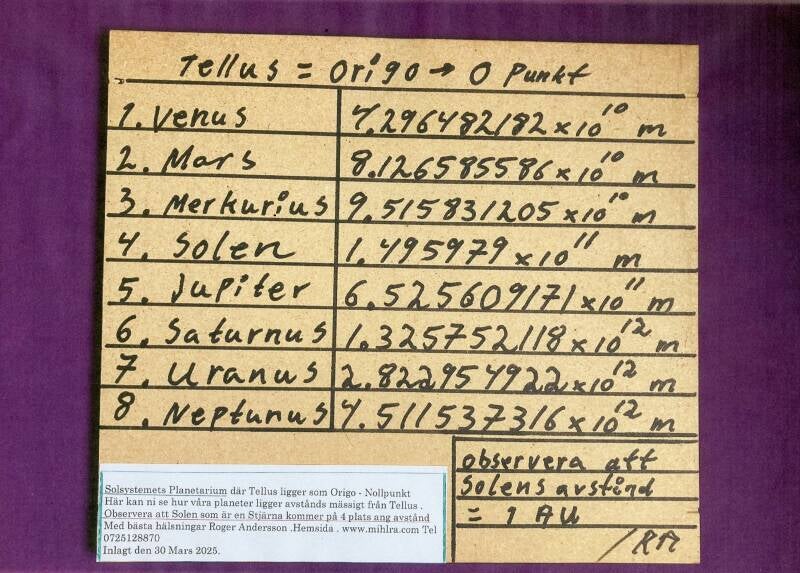 Tellus = Origo → 0 Punkt
1. Venus 4.296482182 x 10^10 m
2. Mars 8.126585586 x 10^10 m
3. Merkurius 9.515831205 x 10^10 m
4. Solen 1.495979 x 10^11 m
5. Jupiter 6.525609171 x 10^11 m
6. Saturnus 1.325752118 x 10^12 m
7. Uranus 2.822954922 x 10^12 m
8. Neptunus 4.511537316 x 10^12 m
observera att
Solens avstånd
= 1 AU
/RA
Solsystemets Planetarium där Tellus ligger som Origo - Nollpunkt
Här kan ni se hur våra planeter ligger avstånds mässigt från Tellus .
Observera att Solen som är en Stjärna kommer på 4 plats ang avstånd
Med bästa hälsningar Roger Andersson .Hemsida . www.mihlra.com Tel
0725128870
Inlagt den 30 Mars 2025.